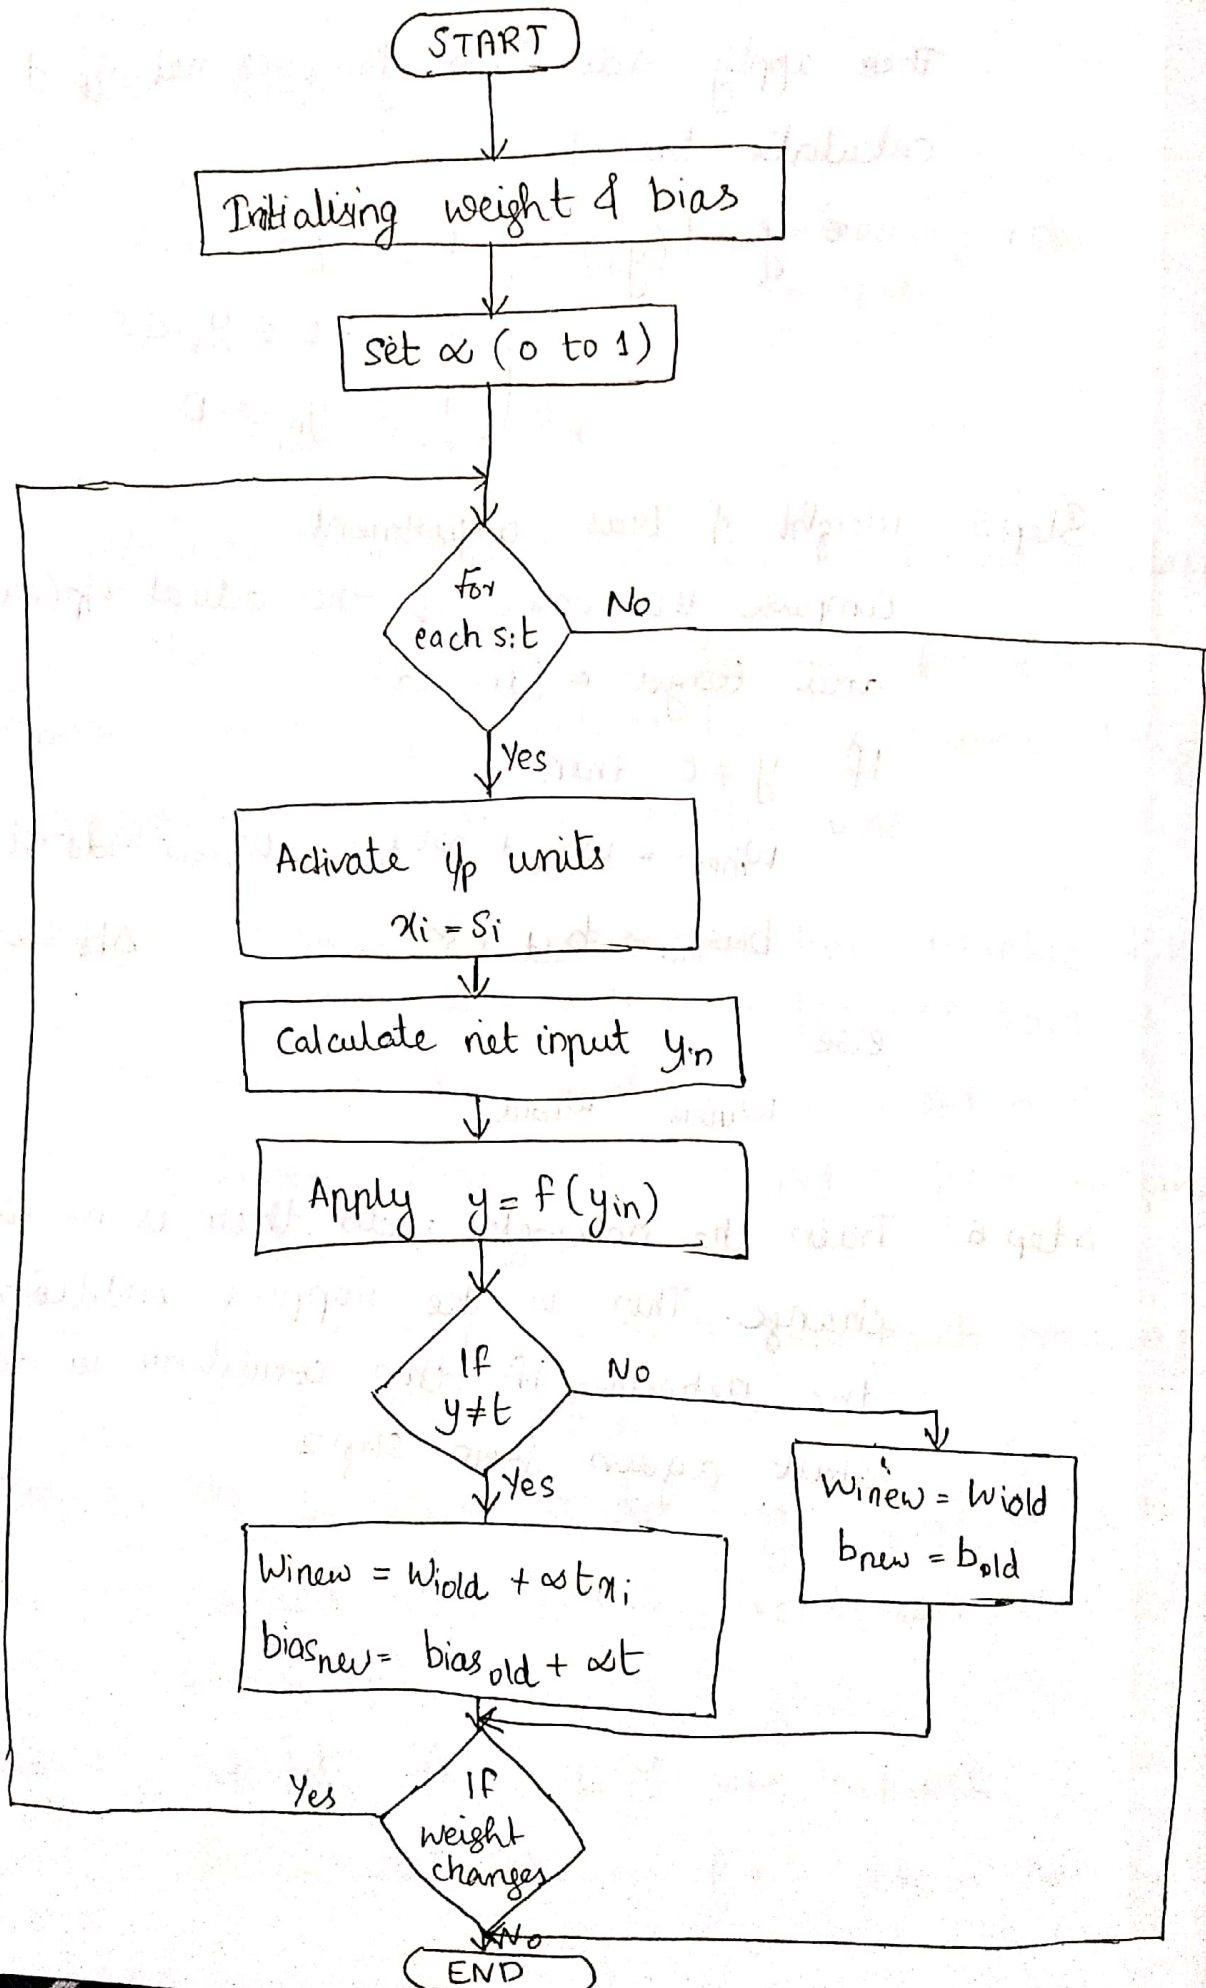 START
Initialising weight & bias
Set α (0 to 1)
For
each s:t
No
Yes
Activate i/p units
xi = Si
Calculate net input yin
Apply y = f(yin)
If
y≠t
No
Yes
Winew = Wiold
bnew = bold
Winew = Wiold + αtxi
biasnew = biasold + αt
If
weight
changes
Yes
No
END